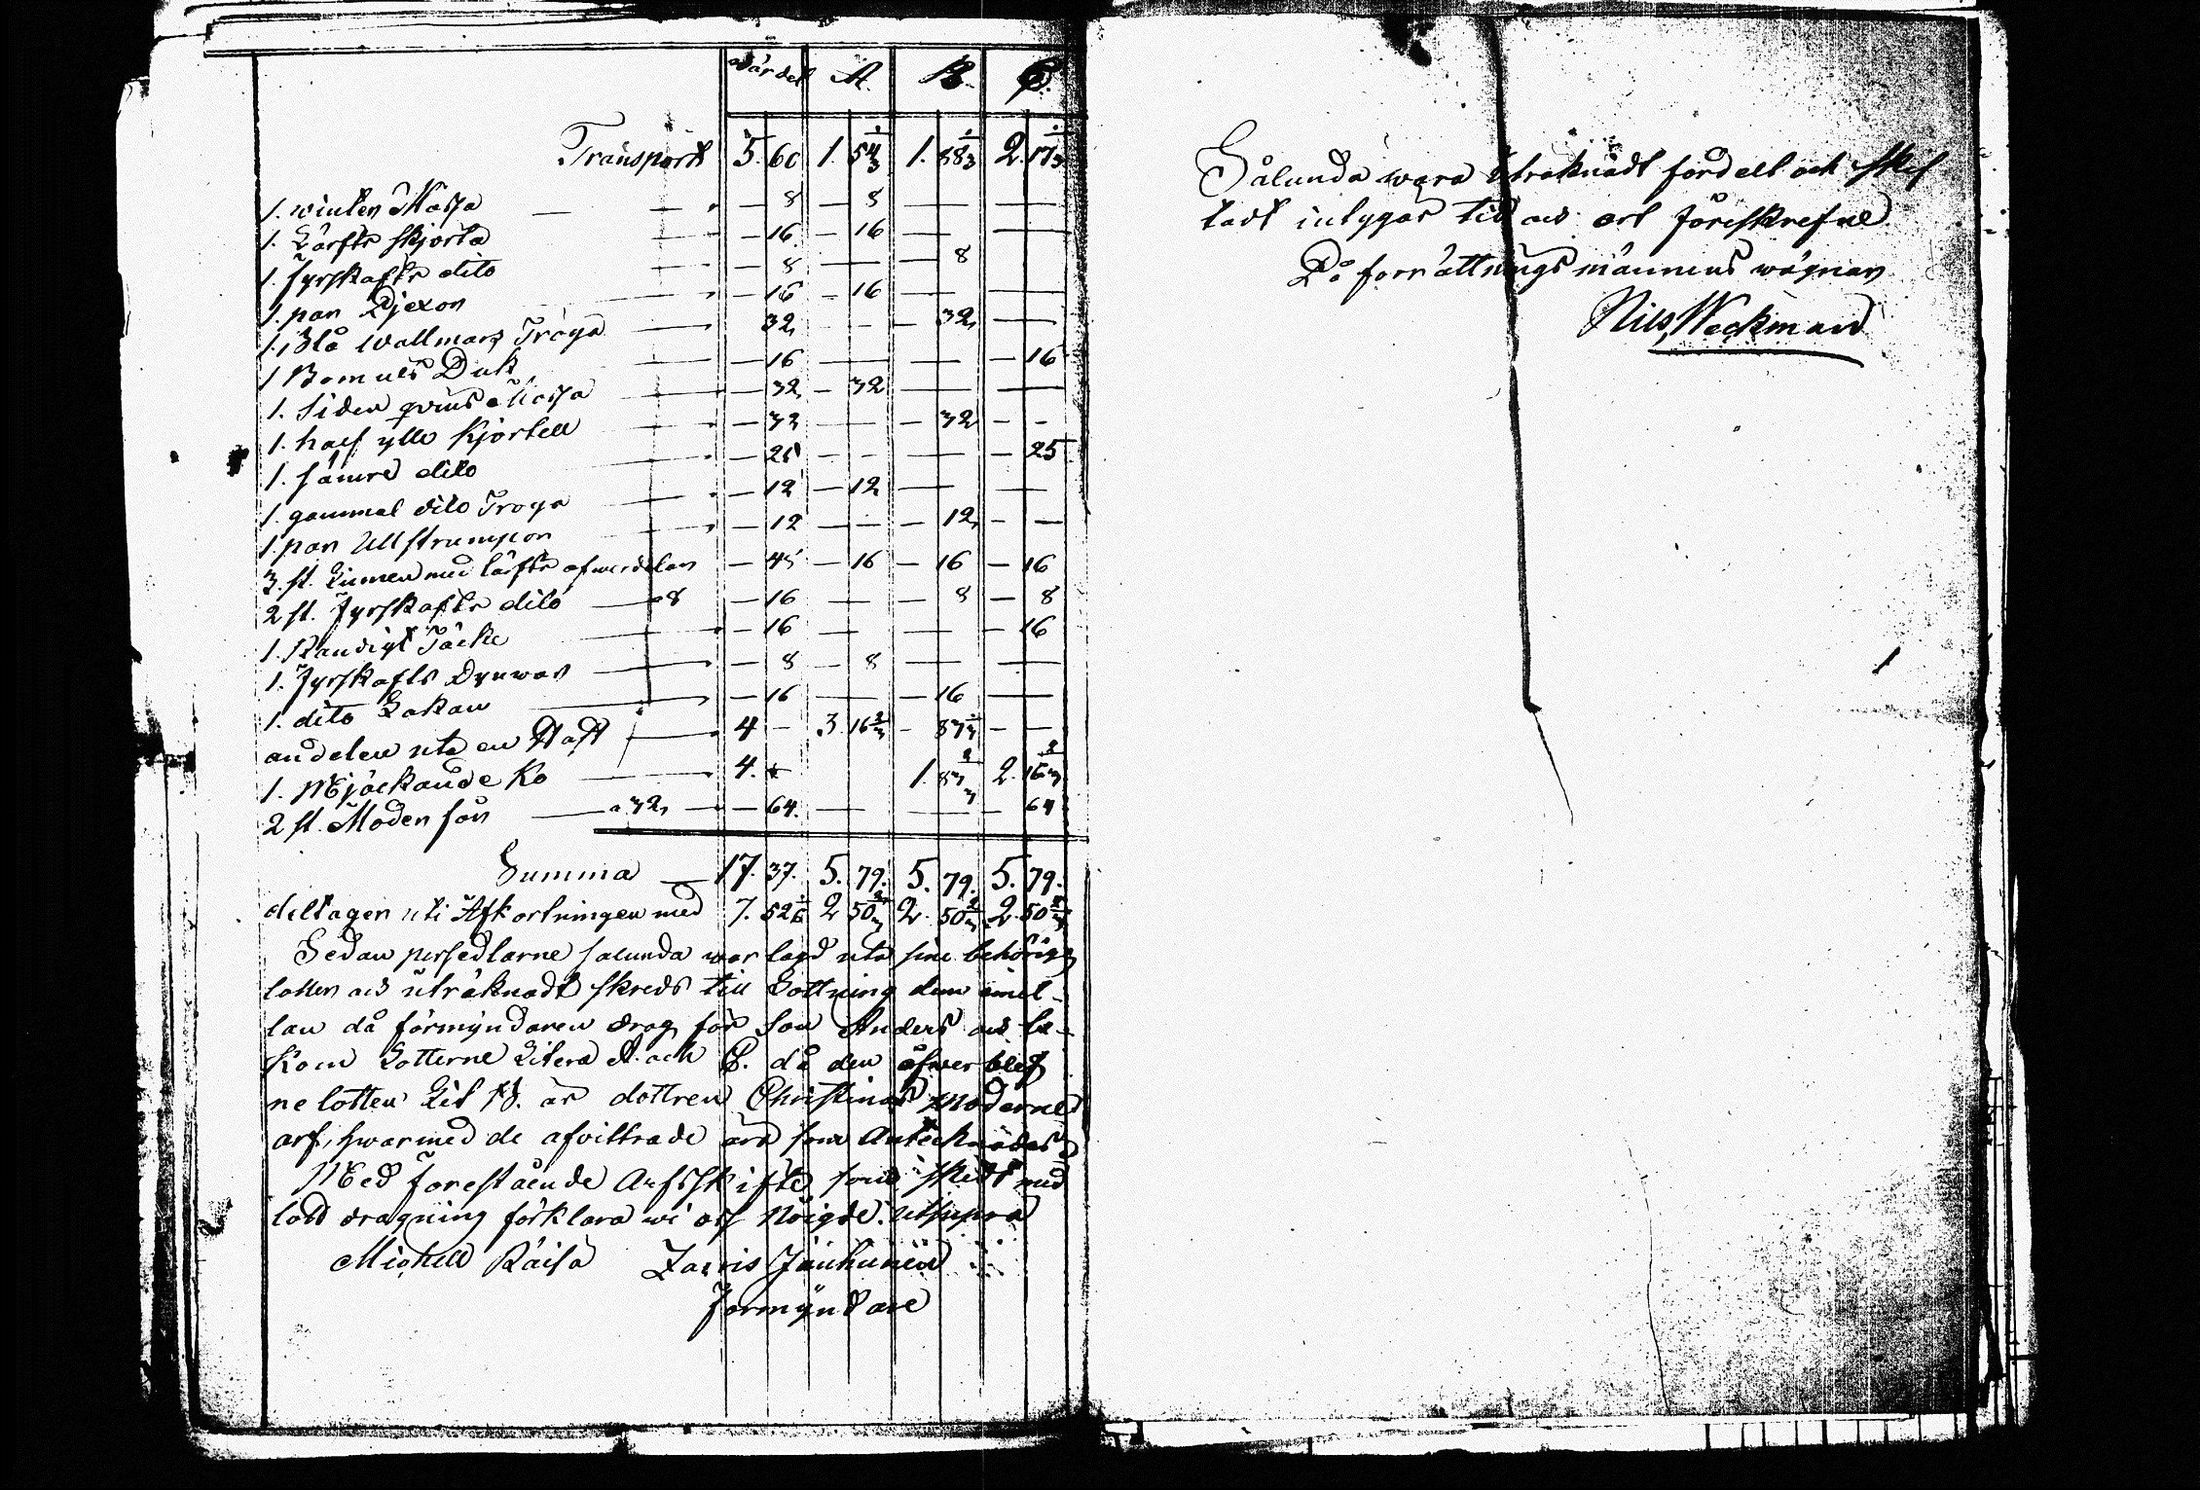 Värdet A. B. C.
Transport 5. 60 1. 54 1/3 1. 88 1/3 2. 17 1/3
1. winter Mössa — 8 — 8 — —
1. Lärfts skjorta — 16 — 16 — —
1. Fyrskafts dito — 8 — — 8
1. par Byxor — 16 — 16 — —
1. Blå wallmars Tröya 32 - - — 32 —
1 Bomuls Duk — 16 — — — 16
1. Siden qvins Mössa — 32 — 32 — —
1. half ylle Kjortell — 32 — — 32 - -
1. sämre dito — 25 - - — 25
1. gammal dito Tröya — 12 — 12 — —
1. par Ullstrumpor — 12 — - — 12 - —
3. st. Linnen med lärfts öfwerdelar — 48 — 16 — 16 — 16
2 st. Fyrskafts dito — a 8 — 16 — — 8 — 8
1. Randigt Täcke — 16 — — — 16
1. Fyrskafts Dynwar — 8 — 8 — —
1. dito Lakan — 16 — — 16 —
andelen uti en Häst 4 - 3. 16 2/3 - 87 1/3 - -
1. Mjölkande Ko 4. - 1. 83 2. 16 2/3
2 st. Moder får — a 32, — 64. — — 64
Summa 17. 37. 5. 79. 5. 79. 5. 79.
deltager uti Afkortningen med 7. 52 2 50 2/3 2. 50 2/3 2. 50 2/3
Sedan persedlarne salunda war lagd uti sine behörige
lotter och uträknadt skreds till Lottning dem imel-
lan då förmyndaren drog för son Anders och be-
kom Lotterne Litera A. och C. då den öfwer blef
ne lotten Lit B. är dottren Christinas möderne
arf, hwarmed de afvittrade äro som Antecknades
Med förestående Arfsskifte som skedt med
lott dragning förklara wi oss Nöigde. ut supra
Michell Räisä Zarris Jänhunen
Förmyndare
Sålunda wara Uträknadt fördelt och skif
tadt intygas tid och ort föreskrefne.
På forrättnings männens wägnar
Nils Weckman